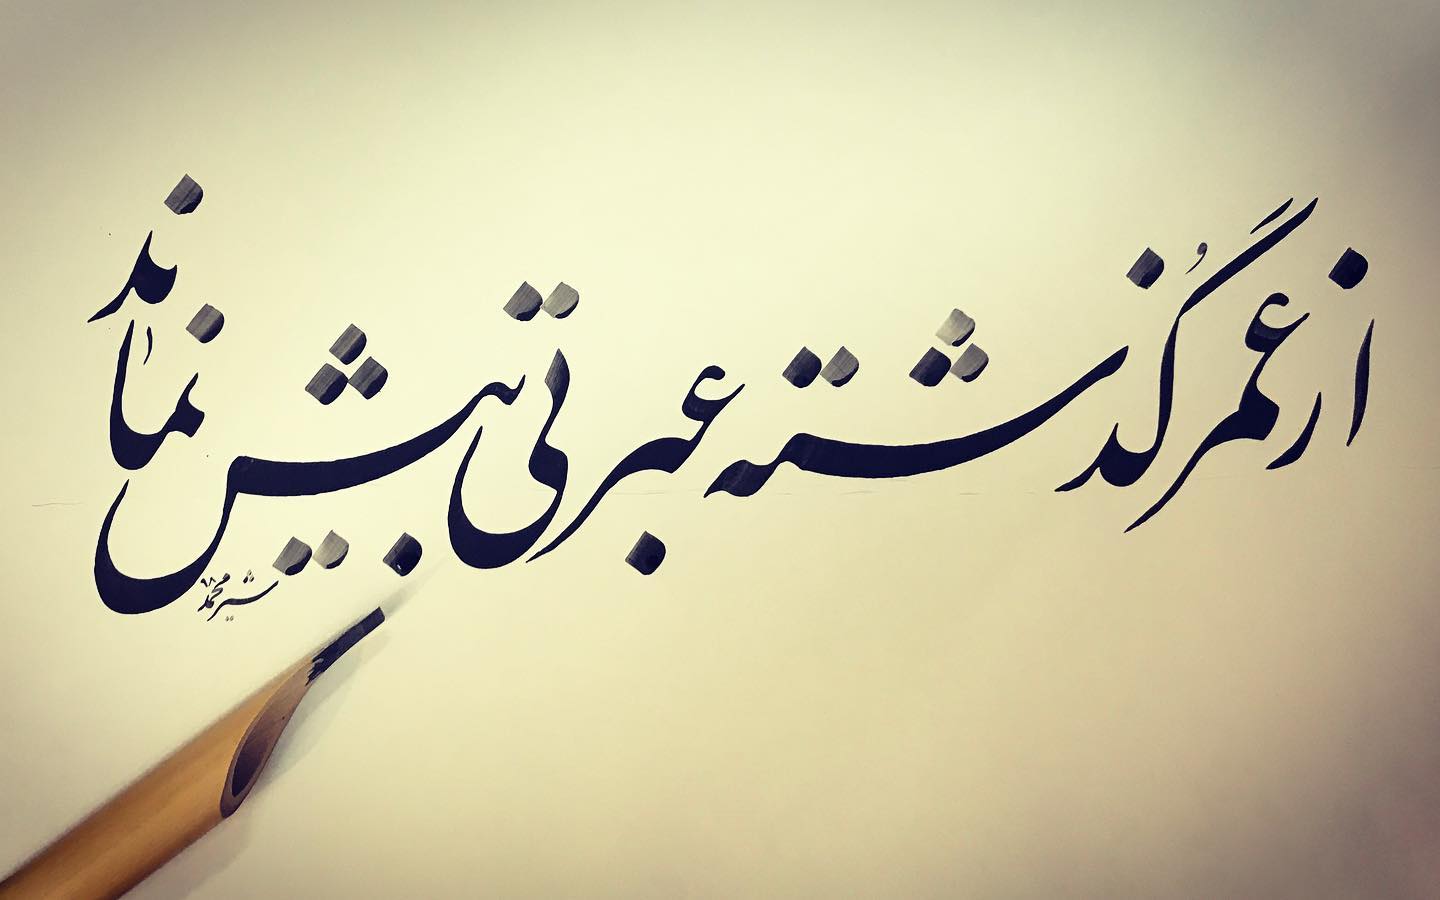 از عمر گُذشته عبرتی بیش نماند
شیرمحمد ۹۸